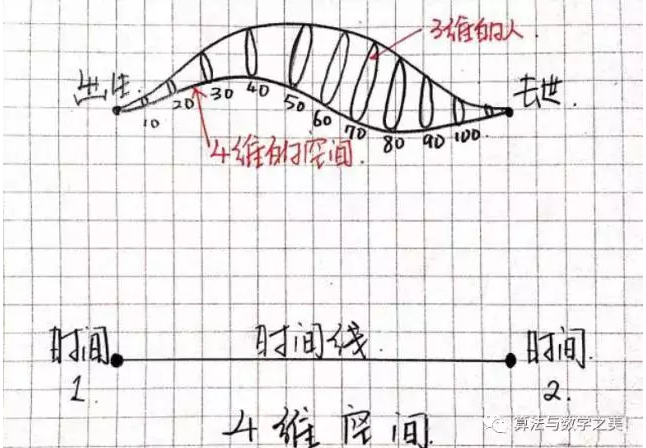 3维的人
出生
去世
10 20 30 40 50 60 70 80 90 100
4维的空间
时间1.
时间线
时间2.
4维空间
算法与数学之美